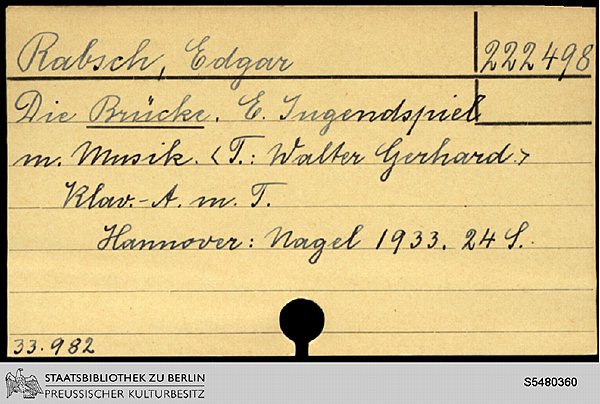 Rabsch, Edgar 222498
Die Brücke. E. Jugendspiel
m. Musik. <T.: Walter Gerhard.>
Klav.-A. m. T.
Hannover: Nagel 1933. 24 S.
33.982
STAATSBIBLIOTHEK ZU BERLIN
PREUSSISCHER KULTURBESITZ
S5480360